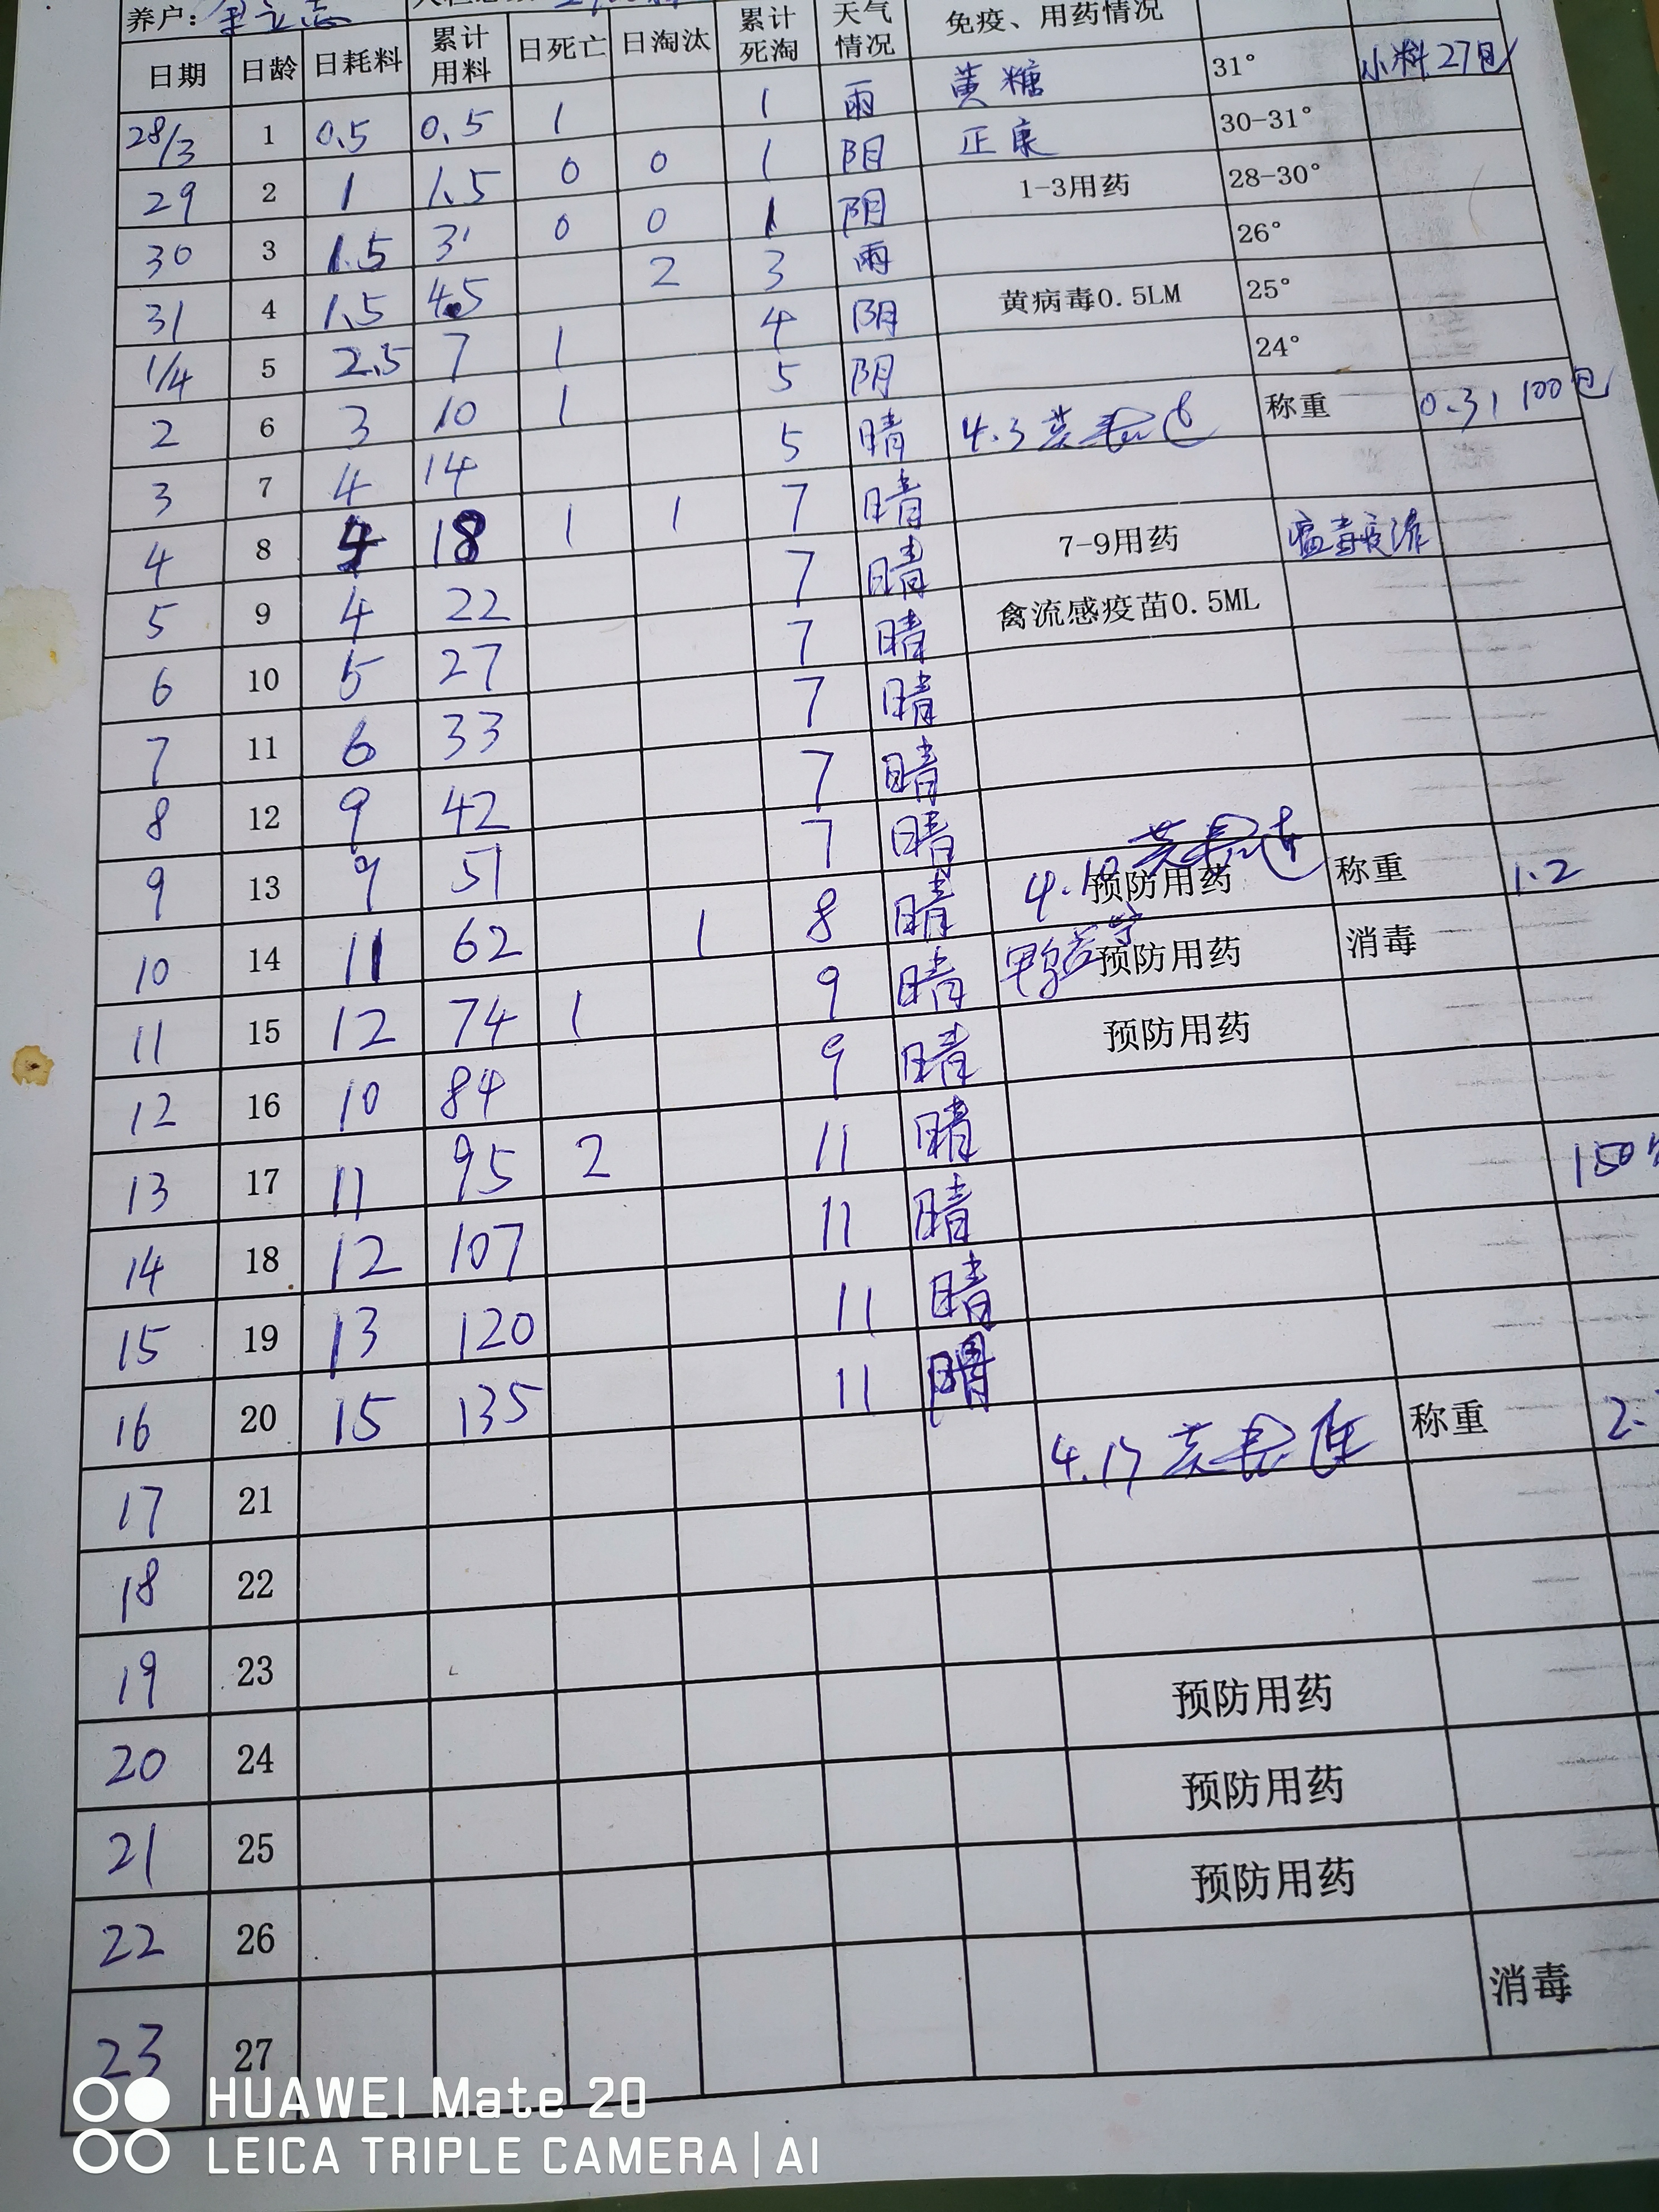 养户:
日期 日龄 日耗料 累计用料 日死亡 日淘汰 累计死淘 天气情况 免疫、用药情况
28/3 1 0.5 0.5 1 1 雨 黄糖 31° 小料27包
29 2 1 1.5 0 0 1 阴 正康 30-31°
30 3 1.5 3 0 0 1 阴 1-3用药 28-30°
31 4 1.5 4.5 2 3 雨 26°
1/4 5 2.5 7 1 4 阴 黄病毒0.5LM 25°
2 6 3 10 1 5 阴 24°
3 7 4 14 5 晴 4.3 称重 0.31 100包
4 8 4 18 1 1 7 晴
5 9 4 22 7 晴 7-9用药
6 10 5 27 7 晴 禽流感疫苗0.5ML
7 11 6 33 7 晴
8 12 9 42 7 晴
9 13 9 51 7 晴
10 14 11 62 1 8 晴 4.10 预防用药 称重 1.2
11 15 12 74 1 9 晴 预防用药 消毒
12 16 10 84 9 晴 预防用药
13 17 11 95 2 11 晴
14 18 12 107 11 晴 150
15 19 13 120 11 晴
16 20 15 135 11 晴
17 21 4.17 称重 2.
18 22
19 23
20 24 预防用药
21 25 预防用药
22 26 预防用药
23 27 消毒
HUAWEI Mate 20
LEICA TRIPLE CAMERA | AI